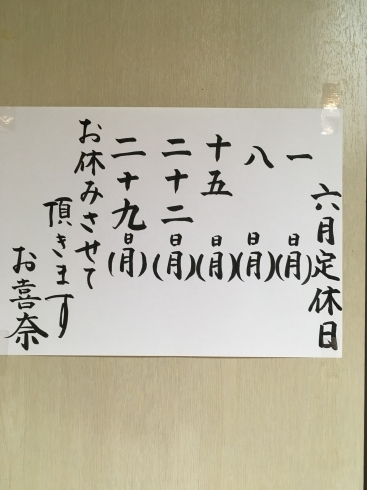 六月定休日
一日(月)
八日(月)
十五日(月)
二十二日(月)
二十九日(月)
お休みさせて
頂きます
お喜奈